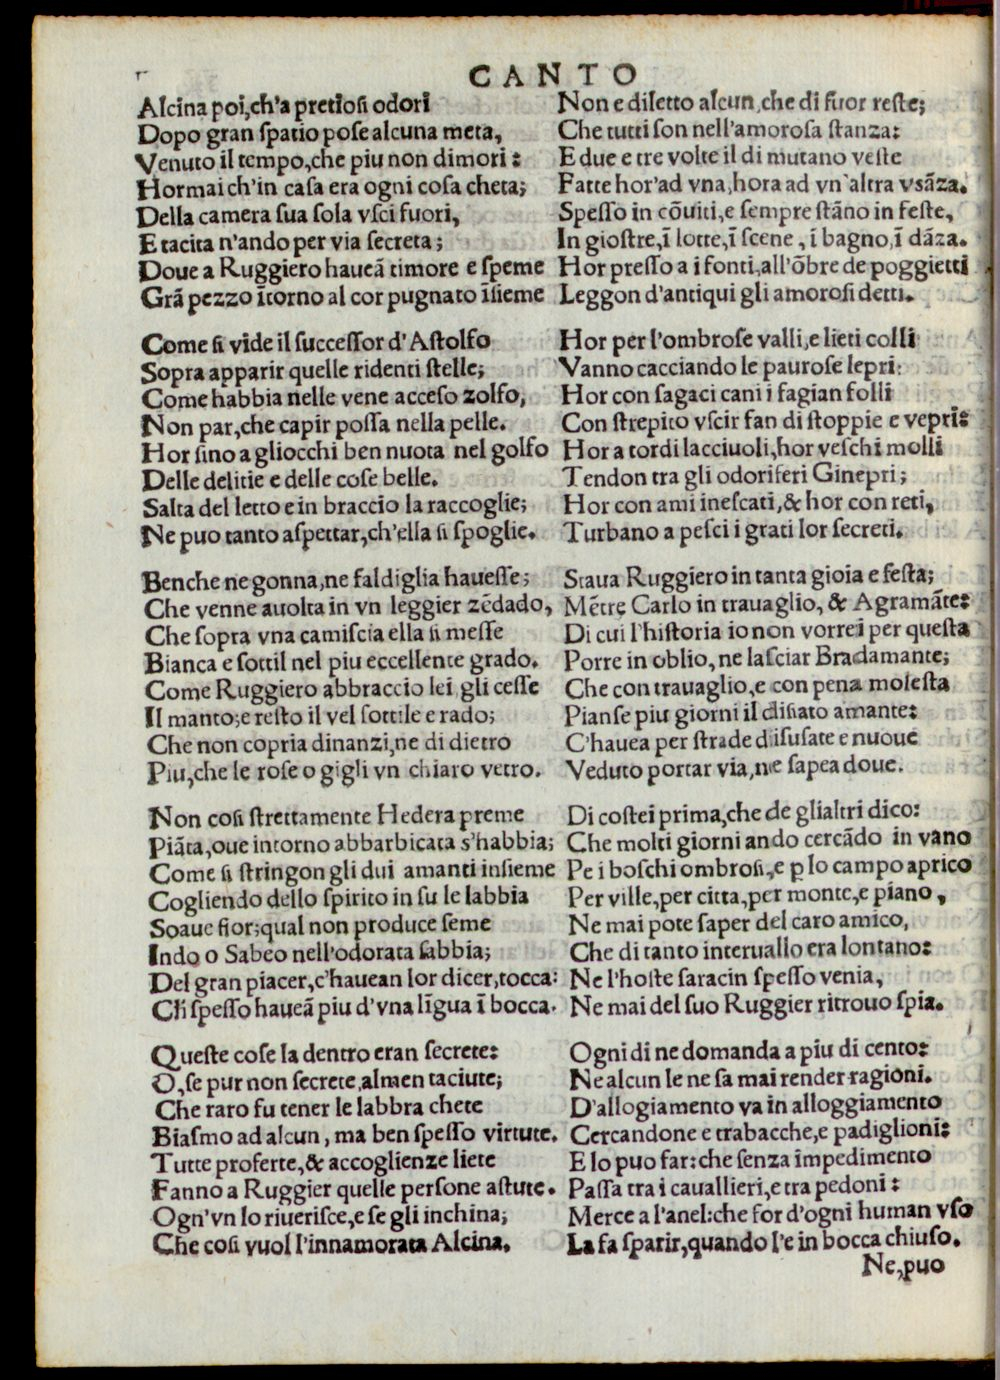 CANTO
Alcina poi, ch'a pretiosi odori
Dopo gran spatio pose alcuna meta,
Venuto il tempo, che piu non dimori:
Hormai ch'in casa era ogni cosa cheta;
Della camera sua sola vsci fuori,
E tacita n'ando per via secreta;
Doue a Ruggiero haueã timore e speme
Grã pezzo ĩtorno al cor pugnato ĩsieme
Come si vide il successor d'Astolfo
Sopra apparir quelle ridenti stelle;
Come habbia nelle vene acceso zolfo,
Non par, che capir possa nella pelle.
Hor sino a gliocchi ben nuota nel golfo
Delle delitie e delle cose belle.
Salta del letto e in braccio la raccoglie;
Ne puo tanto aspettar, ch'ella si spoglie.
Benche ne gonna, ne faldiglia hauesse;
Che venne auolta in vn leggier zẽdado,
Che sopra vna camiscia ella si messe
Bianca e sottil nel piu eccellente grado.
Come Ruggiero abbraccio lei gli cesse
Il manto; e resto il vel sottile e rado;
Che non copria dinanzi, ne di dietro
Piu, che le rose o gigli vn chiaro vetro.
Non cosi strettamente Hedera preme
Piãta, oue intorno abbarbicata s'habbia;
Come si stringon gli dui amanti insieme
Cogliendo dello spirito in su le labbia
Soaue fior; qual non produce seme
Indo o Sabeo nell'odorata sabbia;
Del gran piacer, c'hauean lor dicer, tocca:
Ch̃ spesso haueã piu d'vna lĩgua ĩ bocca.
Queste cose la dentro eran secrete:
O, se pur non secrete, almen taciute;
Che raro fu tener le labbra chete
Biasmo ad alcun, ma ben spesso virtute.
Tutte proferte, & accoglienze liete
Fanno a Ruggier quelle persone astute.
Ogn'vn lo riuerisce, e se gli inchina;
Che cosi vuol l'innamorata Alcina.
Non e diletto alcun, che di fuor reste;
Che tutti son nell'amorosa stanza:
E due e tre volte il di mutano veste
Fatte hor'ad vna, hora ad vn'altra vsãza.
Spesso in cõuiti, e sempre stãno in feste,
In giostre, ĩ lotte, ĩ scene, ĩ bagno, ĩ dãza.
Hor presso a i fonti, all'õbre de poggietti
Leggon d'antiqui gli amorosi detti.
Hor per l'ombrose valli, e lieti colli
Vanno cacciando le paurose lepri:
Hor con sagaci cani i fagian folli
Con strepito vscir fan di stoppie e vepri:
Hor a tordi lacciuoli, hor veschi molli
Tendon tra gli odoriferi Ginepri;
Hor con ami inescati, & hor con reti,
Turbano a pesci i grati lor secreti.
Staua Ruggiero in tanta gioia e festa;
Mẽtre Carlo in trauaglio, & Agramãte:
Di cui l'historia io non vorrei per questa
Porre in oblio, ne lasciar Bradamante;
Che con trauaglio, e con pena molesta
Pianse piu giorni il disiato amante:
C'hauea per strade disusate e nuoue
Veduto portar via, ne sapea doue.
Di costei prima, che de glialtri dico:
Che molti giorni ando cercãdo in vano
Pe i boschi ombrosi, e ꝑ lo campo aprico
Per ville, per citta, per monte, e piano,
Ne mai pote saper del caro amico,
Che di tanto interuallo era lontano:
Ne l'hoste saracin spesso venia,
Ne mai del suo Ruggier ritrouo spia.
Ogni di ne domanda a piu di cento:
Ne alcun le ne sa mai render ragioni.
D'allogiamento va in alloggiamento
Cercandone e trabacche, e padiglioni:
E lo puo far: che senza impedimento
Passa tra i cauallieri, e tra pedoni:
Merce a l'anel: che for d'ogni human vso
La fa sparir, quando l'e in bocca chiuso.
Ne, puo